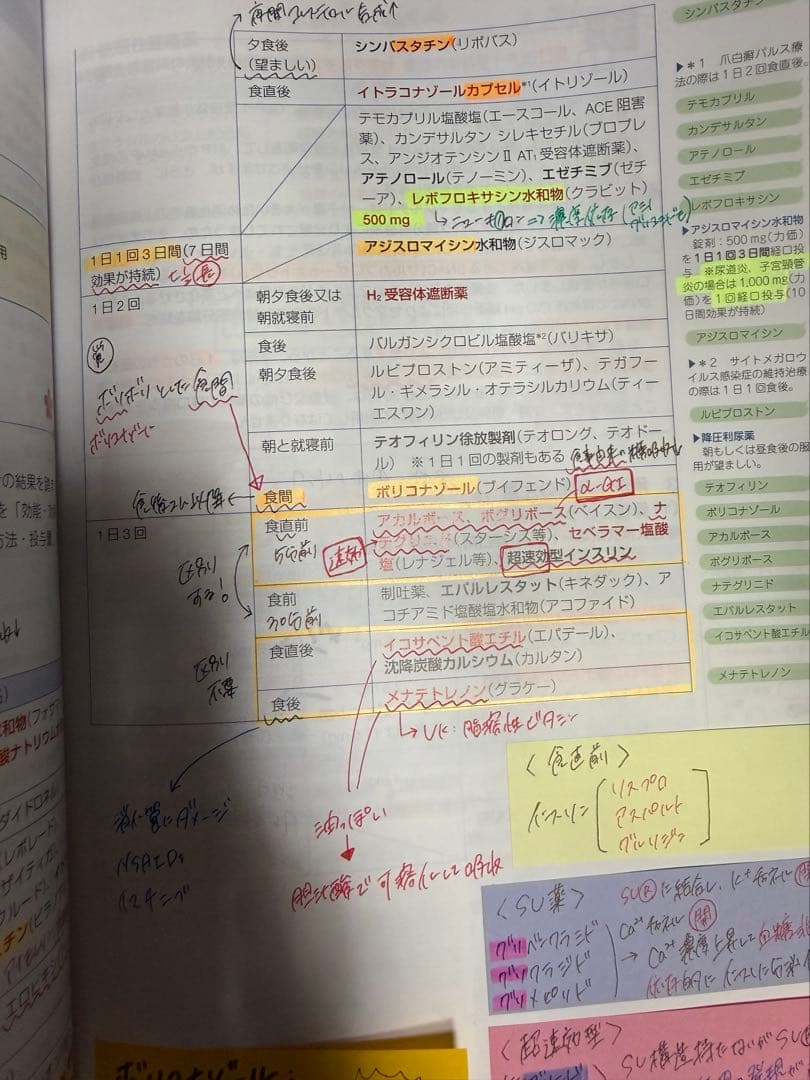 夜間コレステロール合成↑
夕食後
(望ましい)
シンバスタチン(リポバス)
食直後
イトラコナゾールカプセル*1(イトリゾール)
テモカプリル塩酸塩(エースコール、ACE 阻害
薬)、カンデサルタン シレキセチル(ブロプレ
ス、アンジオテンシンⅡ AT₁ 受容体遮断薬)、
アテノロール(テノーミン)、エゼチミブ(ゼチ
ーア)、レボフロキサシン水和物(クラビット)
500 mg
1日1回3日間(7日間
効果が持続)
アジスロマイシン水和物(ジスロマック)
1日2回
朝夕食後又は
朝就寝前
H₂ 受容体遮断薬
食後
バルガンシクロビル塩酸塩*2(バリキサ)
朝夕食後
ルビプロストン(アミティーザ)、テガフー
ル・ギメラシル・オテラシルカリウム(ティー
エスワン)
朝と就寝前
テオフィリン徐放製剤(テオロング、テオドー
ル) ※1日1回の製剤もある
ボリボリとした食間
ボリコナゾール
食間
ボリコナゾール(ブイフェンド)
α-GI
1日3回
食直前
5分前
アカルボース、ボグリボース(ベイスン)、ナ
テグリニド(スターシス等)、セベラマー塩酸
塩(レナジェル等)、超速効型インスリン
速効
区別
する!
食前
30分前
制吐薬、エパルレスタット(キネダック)、ア
コチアミド塩酸塩水和物(アコファイド)
食直後
イコサペント酸エチル(エパデール)、
沈降炭酸カルシウム(カルタン)
区別
不要
食後
メナテトレノン(グラケー)
VK:脂溶性ビタミン
消化管にダメージ
NSAIDs
油っぽい
胆汁酸で可溶化して吸収
シンバスタチン
▶*1 爪白癬パルス療
法の際は1日2回食直後。
テモカプリル
カンデサルタン
アテノロール
エゼチミブ
レボフロキサシン
▶アジスロマイシン水和物
錠剤:500 mg(力価)
を1日1回3日間経口投
与 ※尿道炎、子宮頸管
炎の場合は1,000 mg(力
価)を1回経口投与(10
日間効果が持続)
アジスロマイシン
▶*2 サイトメガロウ
イルス感染症の維持治療
の際は1日1回食後。
ルビプロストン
▶降圧利尿薬
朝もしくは昼食後の服
用が望ましい。
テオフィリン
ボリコナゾール
アカルボース
ボグリボース
ナテグリニド
エパルレスタット
イコサペント酸エチル
メナテトレノン
<食直前>
インスリン
リスプロ
アスパルト
グルリジン
<SU薬>
グリベンクラミド
グリクラジド
グリメピリド
SU(R)に結合し、K⁺チャネル 閉
Ca²⁺チャネル 開
→ Ca²⁺濃度上昇して血糖非
<超速効型>
SU構造持たないがSU
ボリコナゾール: